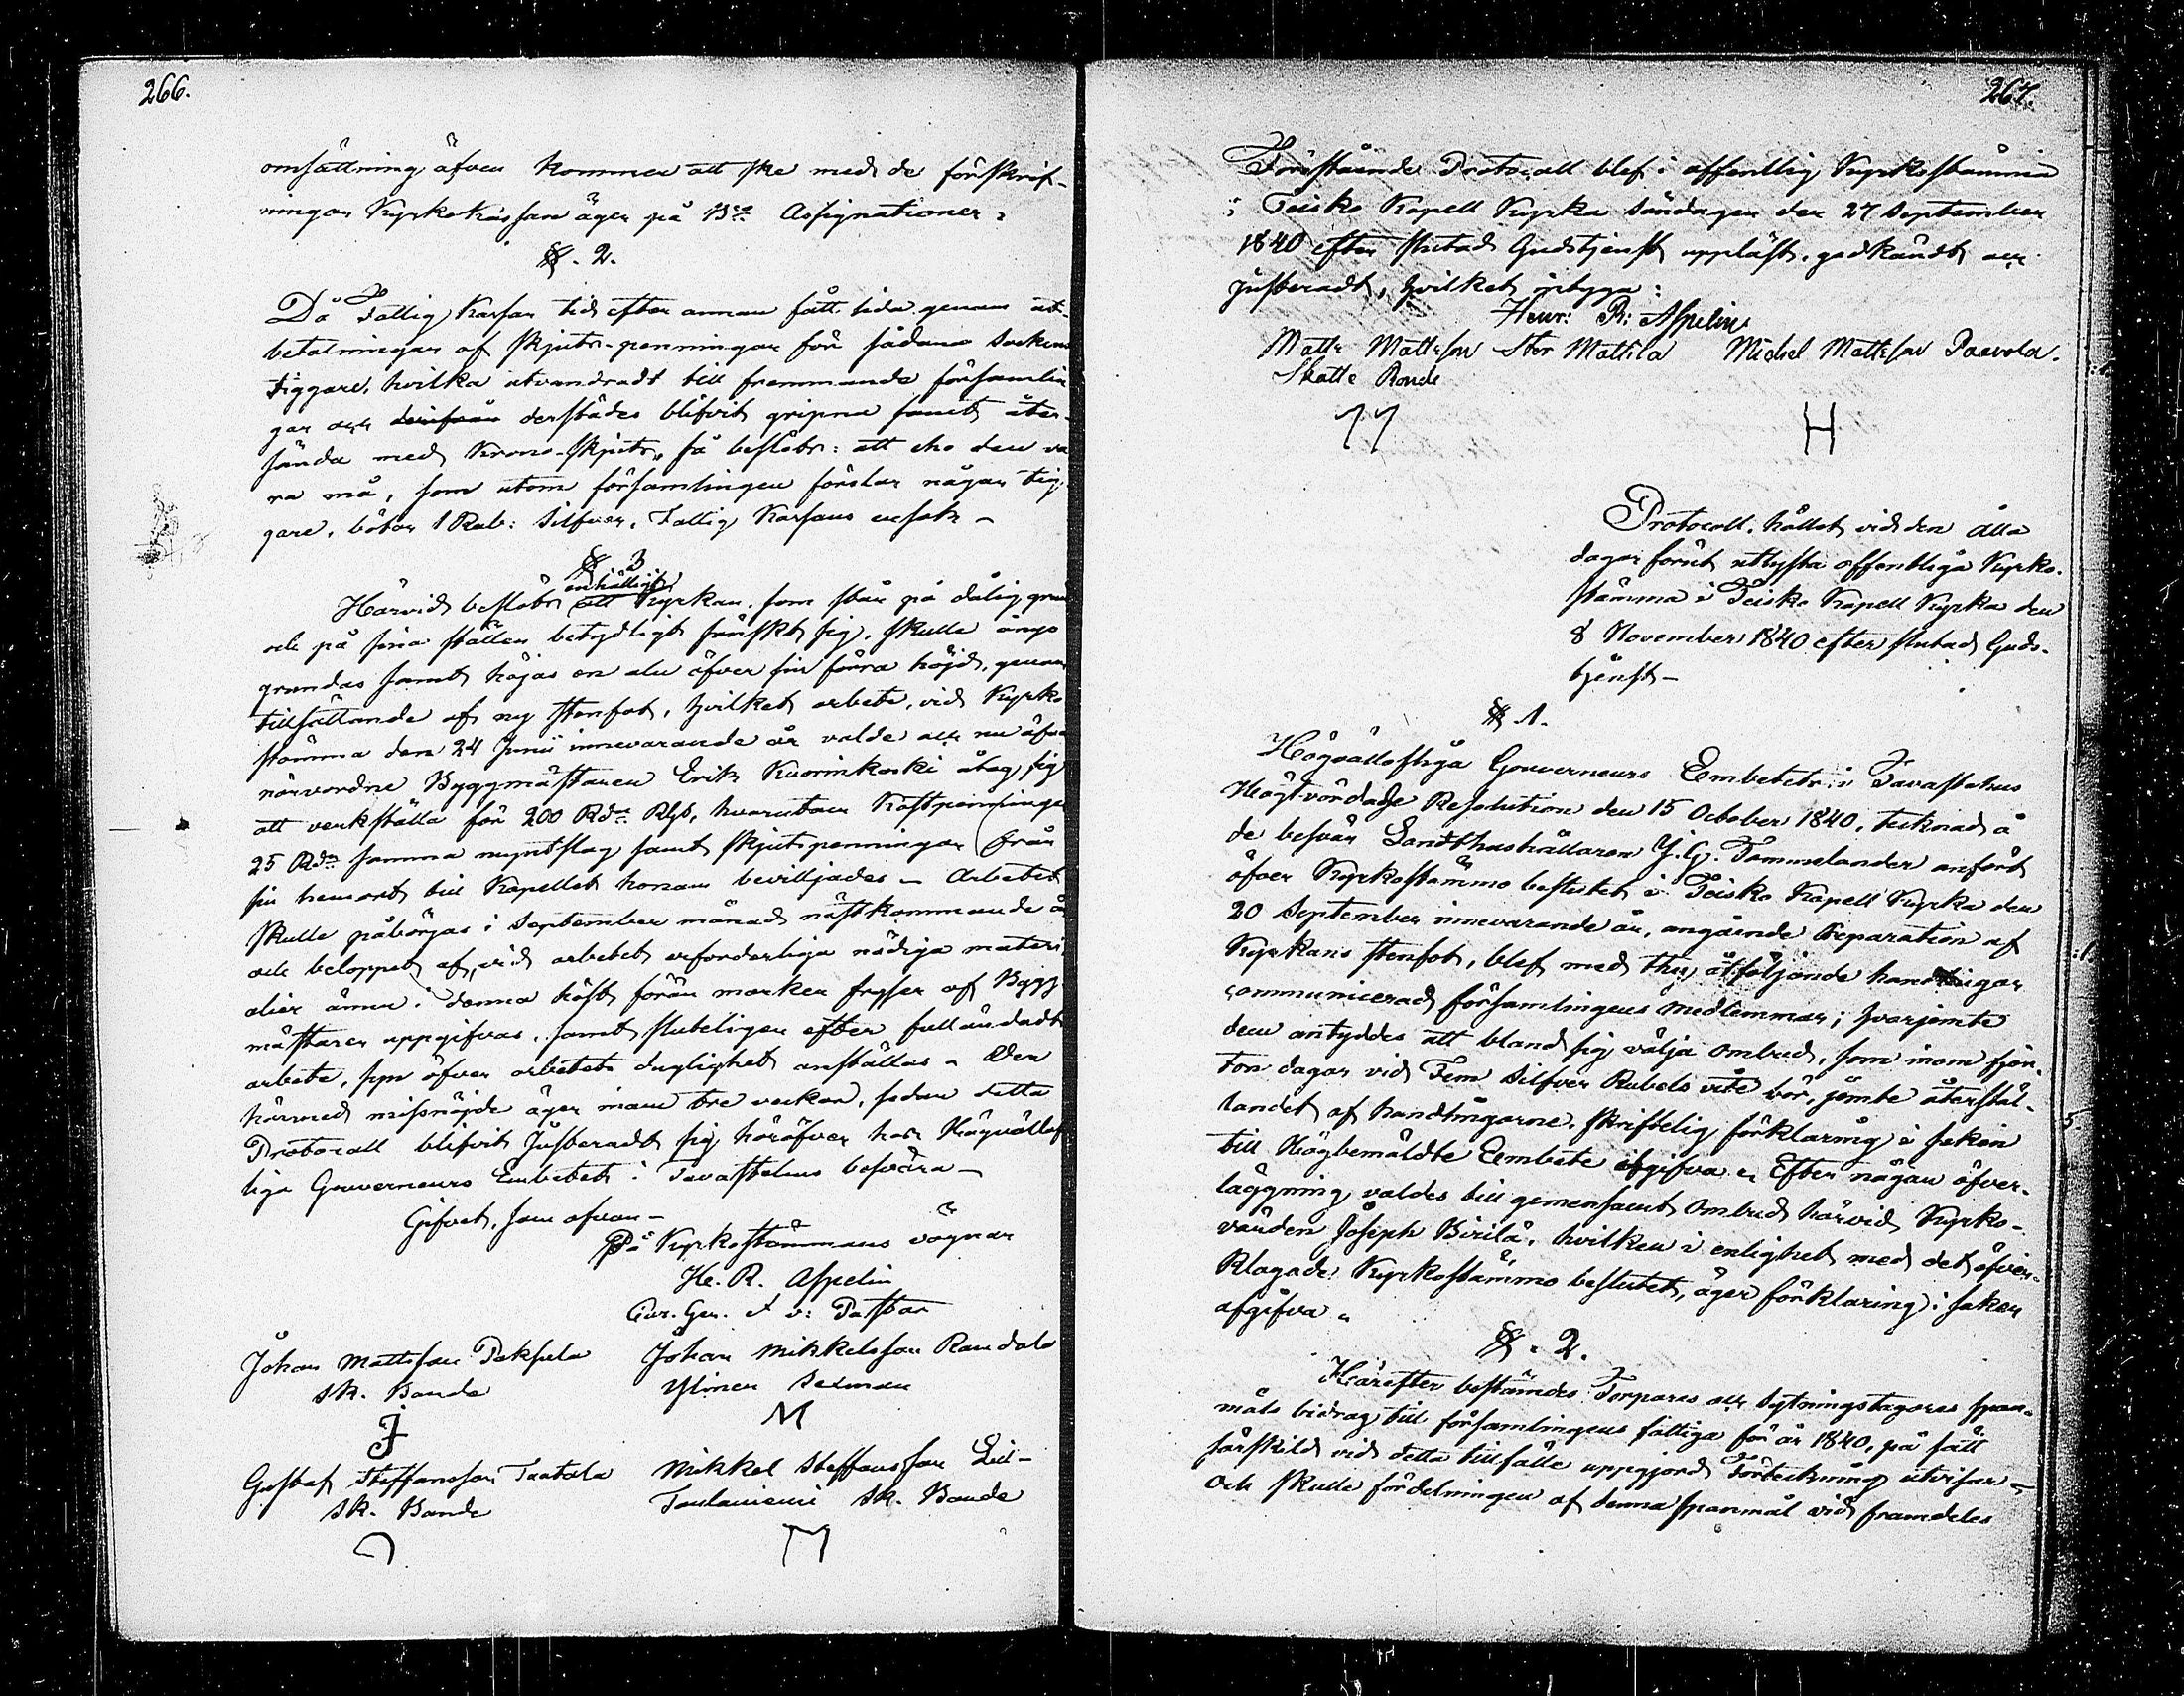 266.
omsättning äfven kommer att ske med de förskrif-
ningar Kyrko Kassan äger på B:co Assignationer.
§. 2.
Då Fattig Kassan tid efter annan fått lida genom ut-
betalningar af skjuts-penningar för sådane Sockens
tiggare, hvilka utvandradt till främmande församlin
gar och derifrån derstädes blifvit gripne samt åter-
sända med Krono-Skjuts, så beslöts: att eho den va
ra må, som utom församlingen förslar någon tig-
gare, böter 1 Rub: Silfver, Fattig Kassans ensak -
§ 3
enhälligt
Härvid beslöts att Kyrkan, som står på dålig grund
och på sina ställen betydligt sänkt sig, skulle ånyo
grundas samt höjas en aln öfver sin förra höjd, genom
tillsättande af ny stenfot, hvilket arbete, vid Kyrko
stämma den 24 Junii innevarande år valde och nu äfven
närvordne Byggmästaren Erik Kuorinkoski åtog sig
att verkställa för 200 Rd:r Rgs, hvarutom Kostpenningar
25 Rd:r samma myntslag samt skjutspenningar från
sin hemort till Kapellet honom bevilljades - Arbetet
skulle påbörjas i September månad nästkommande år
och beloppet af, vid arbetet erforderliga nödiga materi
alier ännu i denna höst förän marken fryser af Bygg-
mästaren uppgifvas, samt slutligen efter fulländadt
arbete, syn öfver arbetets duglighet anställas - Den
härmed missnöjde äger inom tre veckor, sedan detta
Protocoll blifvit Justeradt sig häröfver hos Högvällof
liga Gouverneurs Embetet i Tavastehus besvära -
Gifvet, som ofvan -
På Kyrkostämmans vägnar
He. R. Aspelin
Cur. Gen. et v: Pastor
Johan Mattsson Paksula Johan Mikkelsson Randala
Sk. Bonde Ylinen Sexman
J M
Gustaf Steffansson Taatala Mikkel Steffansson Lill-
Sk. Bonde Taulaniemi Sk. Bonde
267.
Förestående Protocoll blef i offentlig Kyrkostämma
i Teisko Kapell Kyrka Söndagen den 27 September
1840 efter slutad Gudstjenst uppläst, godkändt och
justeradt, hvilket intyga:
Henr: R: Aspelin
Matts Mattsson Stor Mattila Michel Mattsson Paavola.
Skatte Bonde
H
Protocoll, hållet vid den åtta
dagar förut utlysta offentliga Kyrko-
stämma i Teisko Kapell Kyrka den
8 November 1840 efter slutad Guds-
tjenst -
§ 1.
Högvälloflige Gouverneurs Embetets i Tavastehus
Högtvördade Resolution den 15 October 1840, tecknad å
de besvär Landthushållaren J. G. Tammelander anfört
öfver Kyrkostämmo beslutet i Teisko Kapell Kyrka den
20 September innevarande år, angående Reparation af
Kyrkans stenfot, blef med thy åtföljande handlingar
communicerad församlingens medlemmar; hvarjemte
dem antyddes att bland sig välja ombud, som inom fjor-
ton dagar vid Fem Silfver Rubels vite bör, jemte återstäl-
landet af handlingarne, skriftelig förklaring i saken
till Högbemäldte Embete afgifva. Efter någon öfver-
läggning valdes till gemensamt Ombud härvid Kyrko-
värden Joseph Birilä, hvilken i enlighet med det öfver-
klagade Kyrkostämmo beslutet, äger förklaring i saken
afgifva.
§. 2.
Härefter bestämdes Torpares och Sytningstagares span-
måls bidrag till församlingens fattiga för år 1840, på sätt
särskild vid detta tillfälle uppgjord Förteckning utvisar -
Och skulle fördelningen af denna spanmål vid framdeles